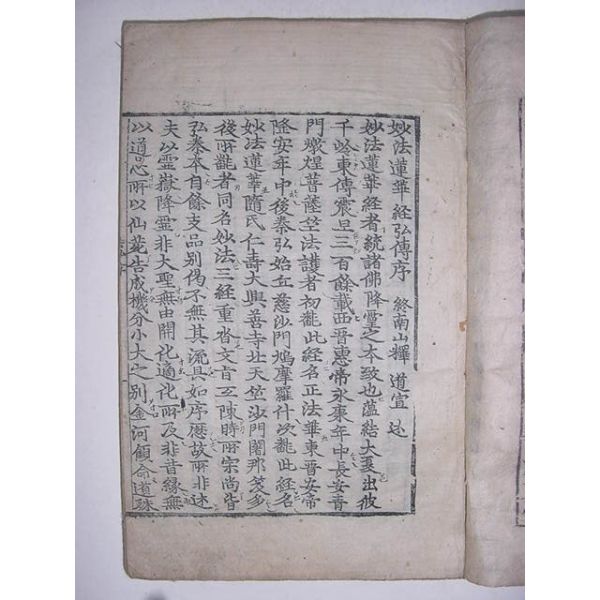 妙法蓮華經弘傳序 終南山釋 道宣 述
妙法蓮華經者統諸佛降靈之本致也蘊結大夏出彼
千齡東傳震旦三百餘載西晉惠帝永康年中長安青
門燉煌菩薩竺法護者初飜此經名正法華東晉安帝
隆安年中後秦弘始丘慈沙門鳩摩羅什次飜此經名
妙法蓮華隋氏仁壽大興善寺北天竺沙門闍那笈多
後所飜者同名妙法三經重沓文旨互陳時所宗尚皆
弘秦本自餘支品別偈不無其流具如序曆故所非述
夫以靈嶽降靈非大聖無由開化適化所及非昔緣無
以導心所以仙苑告成機分小大之別金河顧命道殊